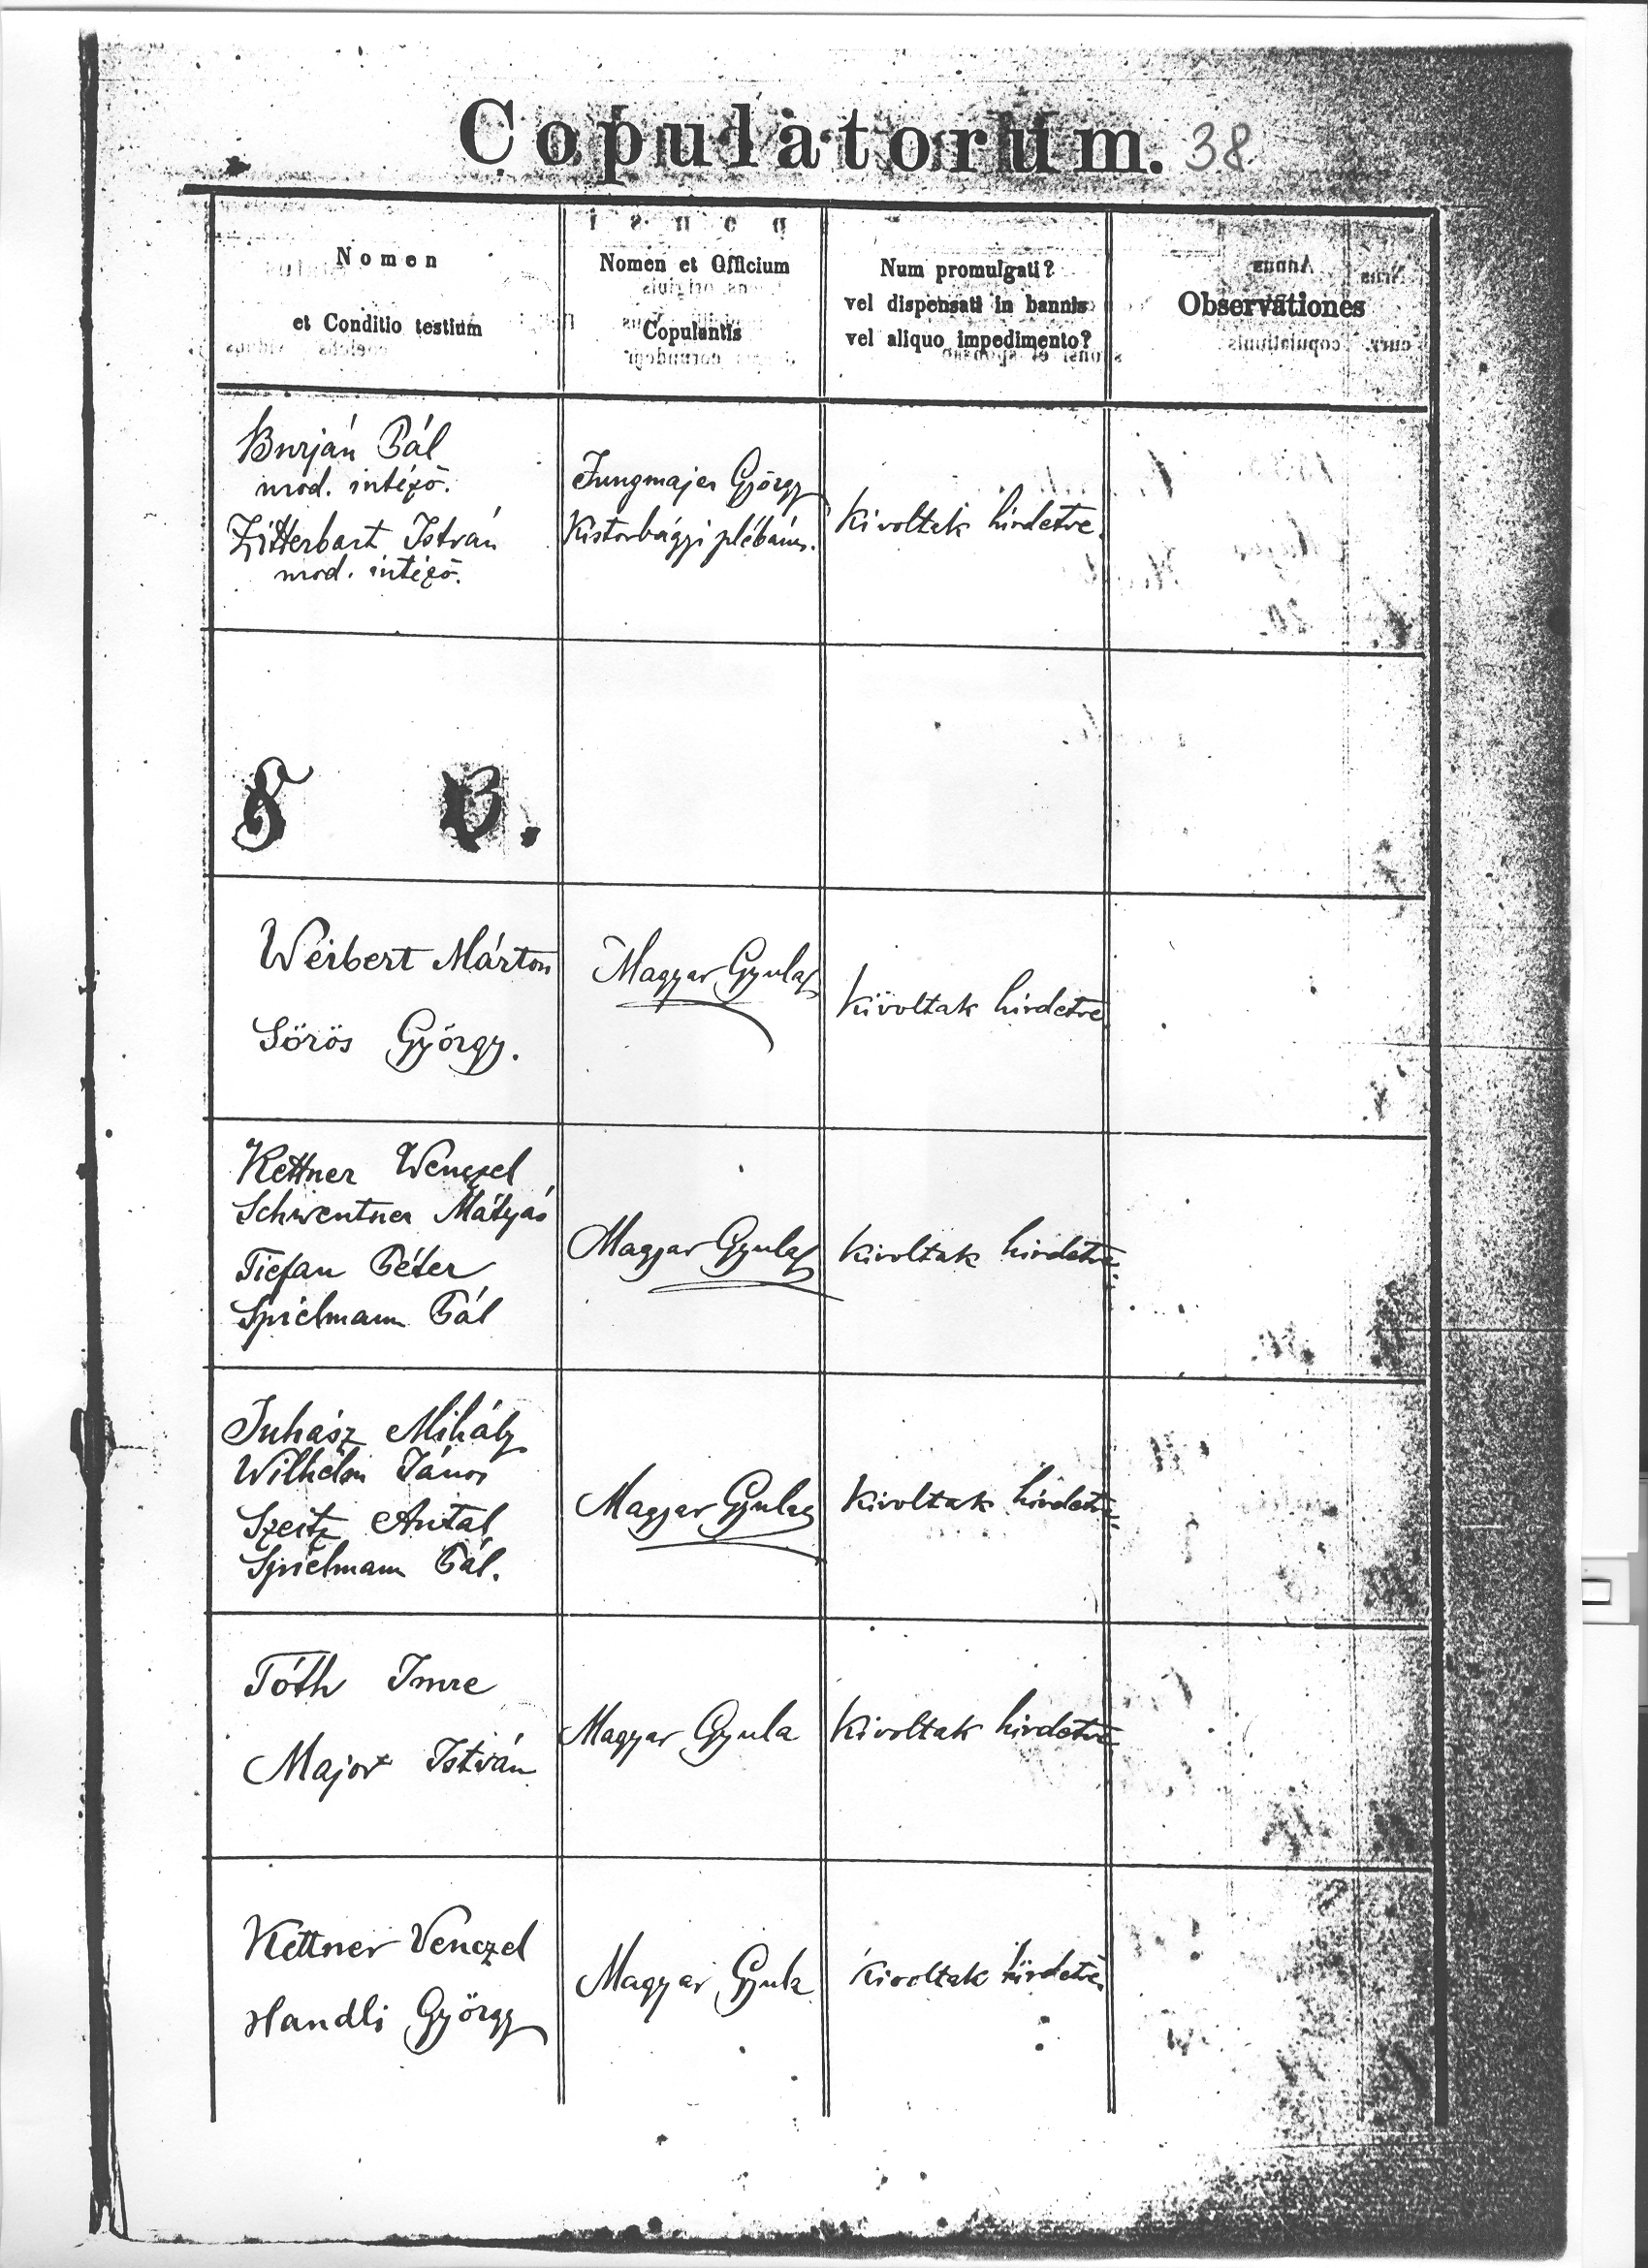 Copulatorum. 38
Nomen
et Conditio testium
Nomen et Officium
Copulantis
Num promulgati?
vel dispensati in bannis
vel aliquo impedimento?
Observationes
Burján Pál
urod. intéző.
Zitterbart István
urod. intéző.
Jungmajer György
Kistorbágyi plébános.
Kivoltak hirdetve.
Weibert Márton
Sörös György.
Magyar Gyula
Kivoltak hirdetve
Kettner Wenczel
Schwentner Mátyás
Tiefan Péter
Spielmann Pál
Magyar Gyula
Kivoltak hirdetve
Juhász Mihály
Wilhelm János
Szeitz Antal
Spielmann Pál.
Magyar Gyula
Kivoltak hirdetve
Tóth Imre
Major István
Magyar Gyula
Kivoltak hirdetve
Kettner Venczel
Handli György
Magyar Gyula
Kivoltak hirdetve